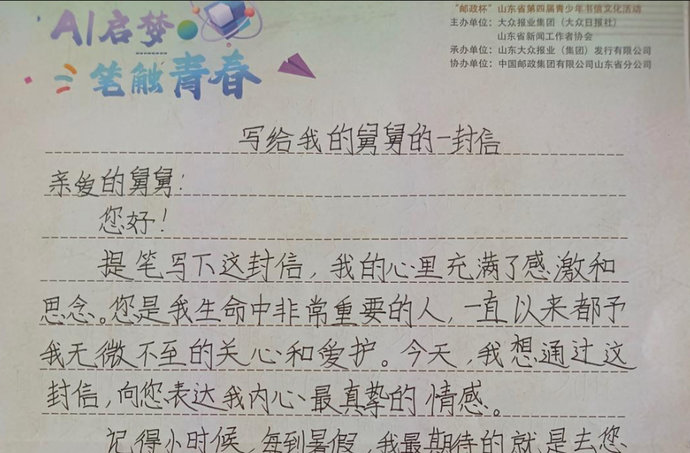 AI启梦
笔触青春
“邮政杯”山东省第四届青少年书信文化活动
主办单位：大众报业集团（大众日报社）
山东省新闻工作者协会
承办单位：山东大众报业（集团）发行有限公司
协办单位：中国邮政集团有限公司山东省分公司
写给我的舅舅的一封信
亲爱的舅舅：
您好！
提笔写下这封信，我的心里充满了感激和
思念。您是我生命中非常重要的人，一直以来都予
我无微不至的关心和爱护。今天，我想通过这
封信，向您表达我内心最真挚的情感。
记得小时候，每到暑假，我最期待的就是去您